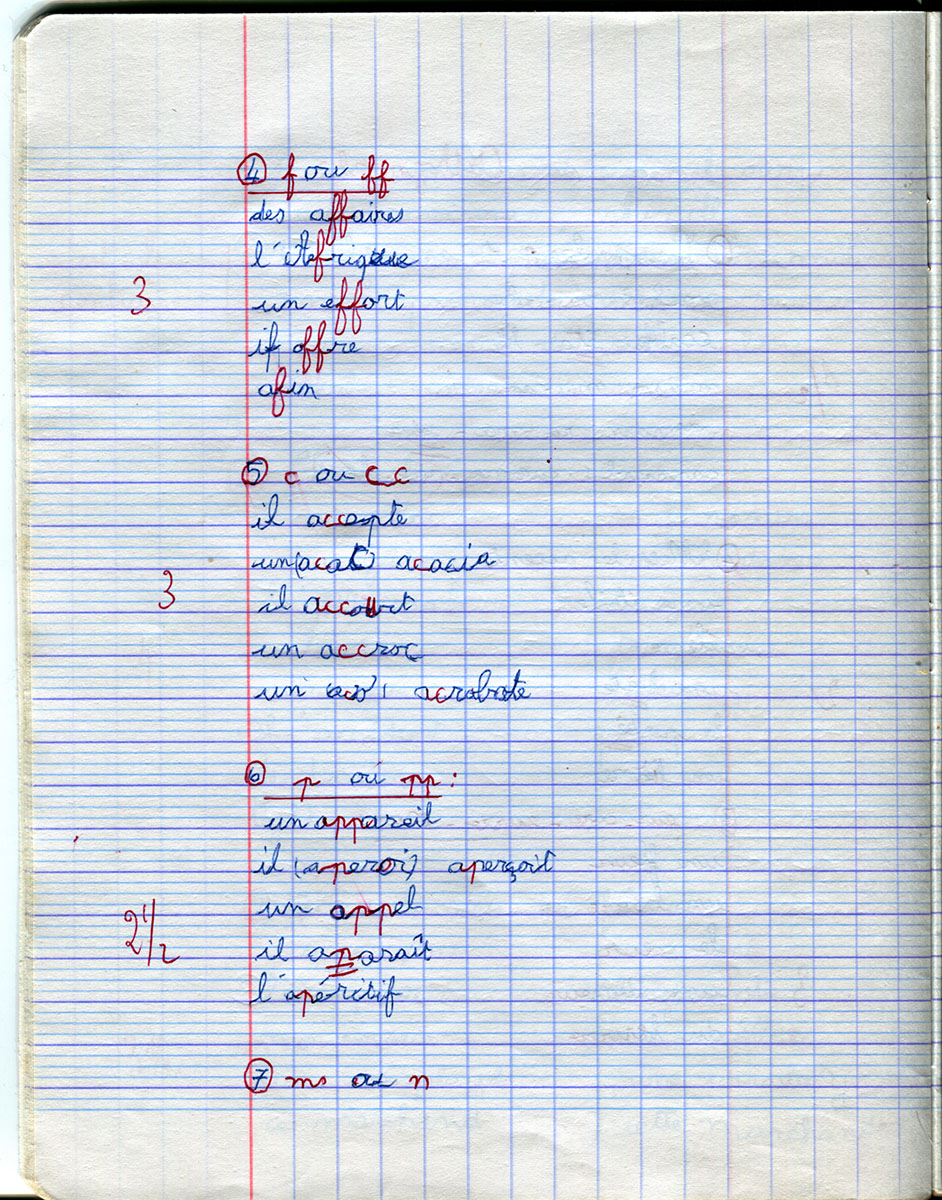 ④ f ou ff
des affaires
l'été frigide
3 un effort
il offre
afin
⑤ c ou cc
il accepte
un (acac) acacia
3 il accourt
un accroc
un (aco) acrobate
⑥ p ou pp :
un appareil
il (aperoi) aperçoit
2 1/2 un appel
il aparaît
l'apéritif
⑦ m ou n